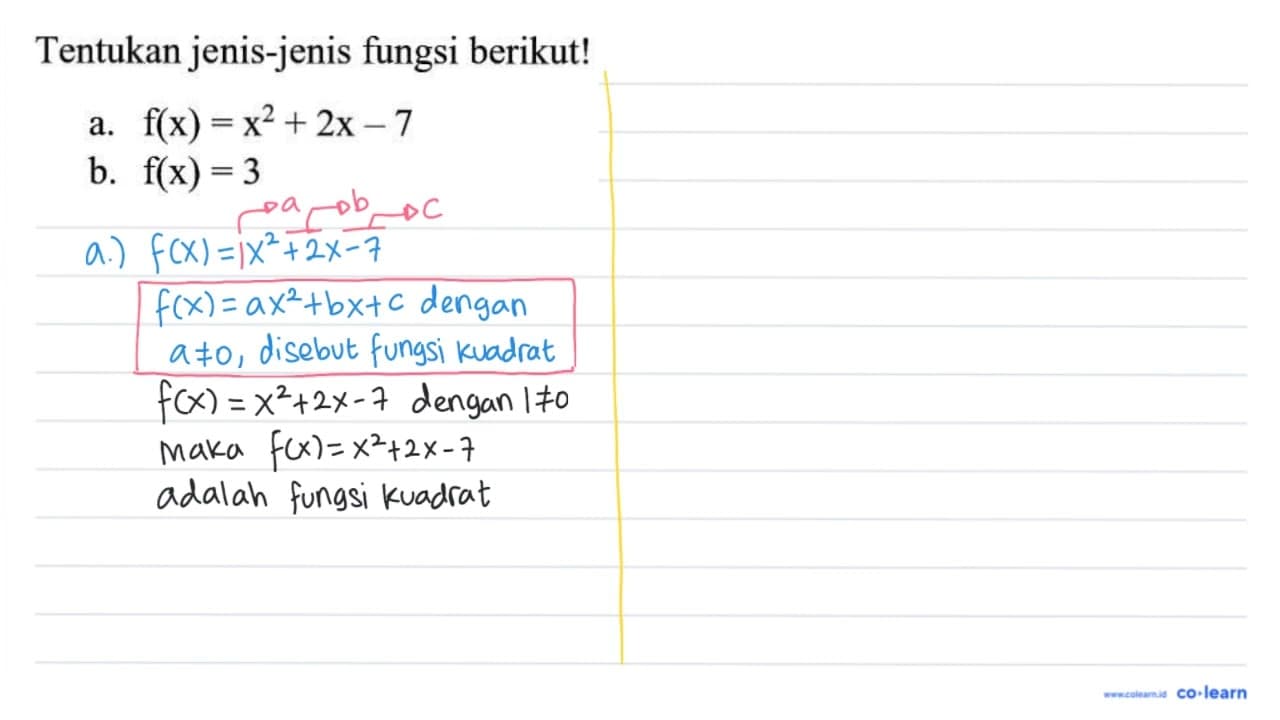 Tentukan jenis-jenis fungsi berikut!
a. f(x) = x² + 2x – 7
b. f(x) = 3
a b c
a.) f(x) = 1x² + 2x - 7
f(x) = ax² + bx + c dengan
a ≠ 0, disebut fungsi kuadrat
f(x) = x² + 2x - 7 dengan 1 ≠ 0
maka f(x) = x² + 2x - 7
adalah fungsi kuadrat
www.colearn.id co·learn